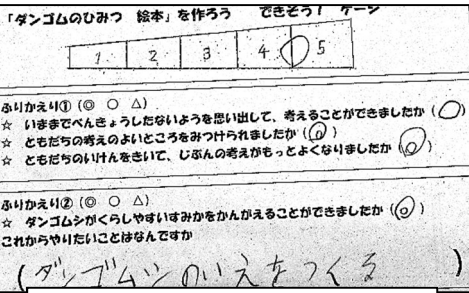 「ダンゴムのひみつ 絵本」を作ろう できそう! ゲージ
1 2 3 4 5
ふりかえり① (◎ ○ △)
☆ いままでべんきょうしたないようを思い出して、考えることができましたか (○)
☆ ともだちの考えのよいところをみつけられましたか (◎)
☆ ともだちのいけんをきいて、じぶんの考えがもっとよくなりましたか (◎)
ふりかえり② (◎ ○ △)
☆ ダンゴムシがくらしやすいすみかをかんがえることができましたか (◎)
これからやりたいことはなんですか
(ダンゴムシのいえをつくる)